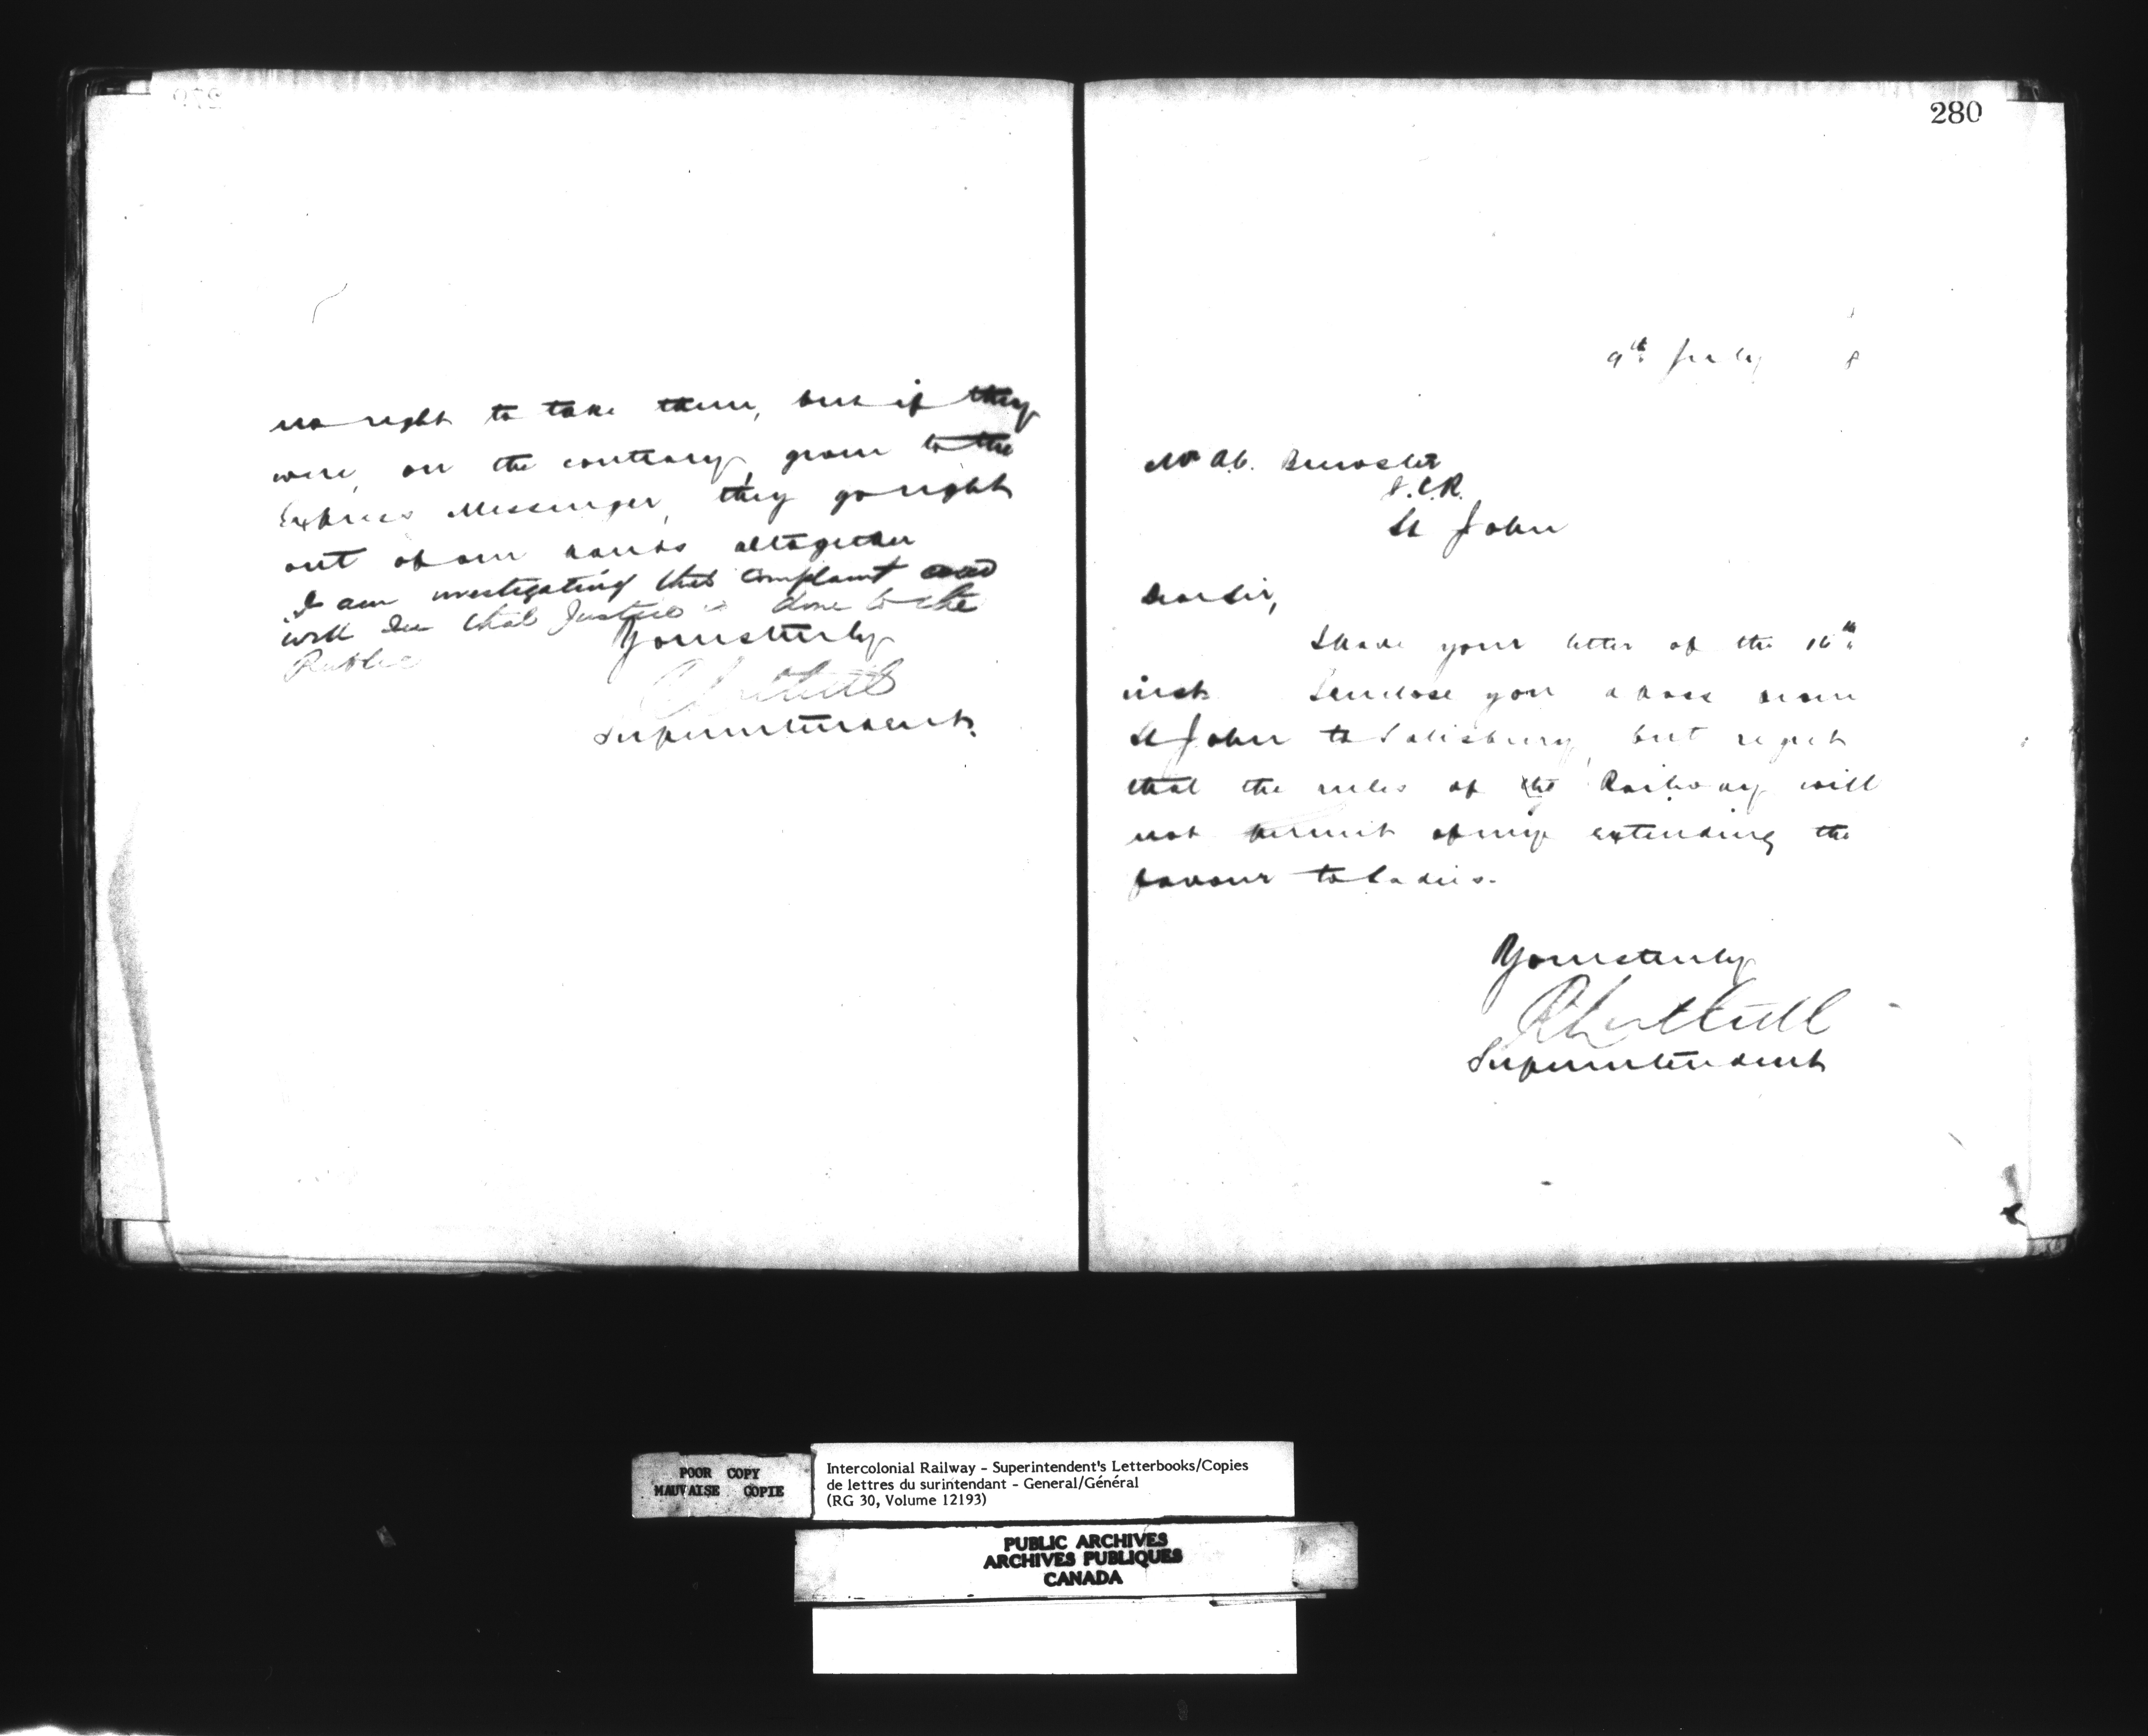 no right to take them, but if they
were, on the contrary, given to the
Express Messenger, they go right
out of our hands altogether
I am investigating this complaint and
will see that Justice is done to the
Public
Yours truly
Superintendent.
280
9th July 8
Mr A.C. Brewster
I.C.R.
St John
Dear Sir,
I have your letter of the 16th
inst. I enclose you a pass from
St John to Salisbury, but regret
that the rules of the Railway will
not permit of my extending the
favour to Ladies.
Yours truly
Superintendent
POOR COPY
MAUVAISE COPIE
Intercolonial Railway - Superintendent's Letterbooks/Copies
de lettres du surintendant - General/Général
(RG 30, Volume 12193)
PUBLIC ARCHIVES
ARCHIVES PUBLIQUES
CANADA